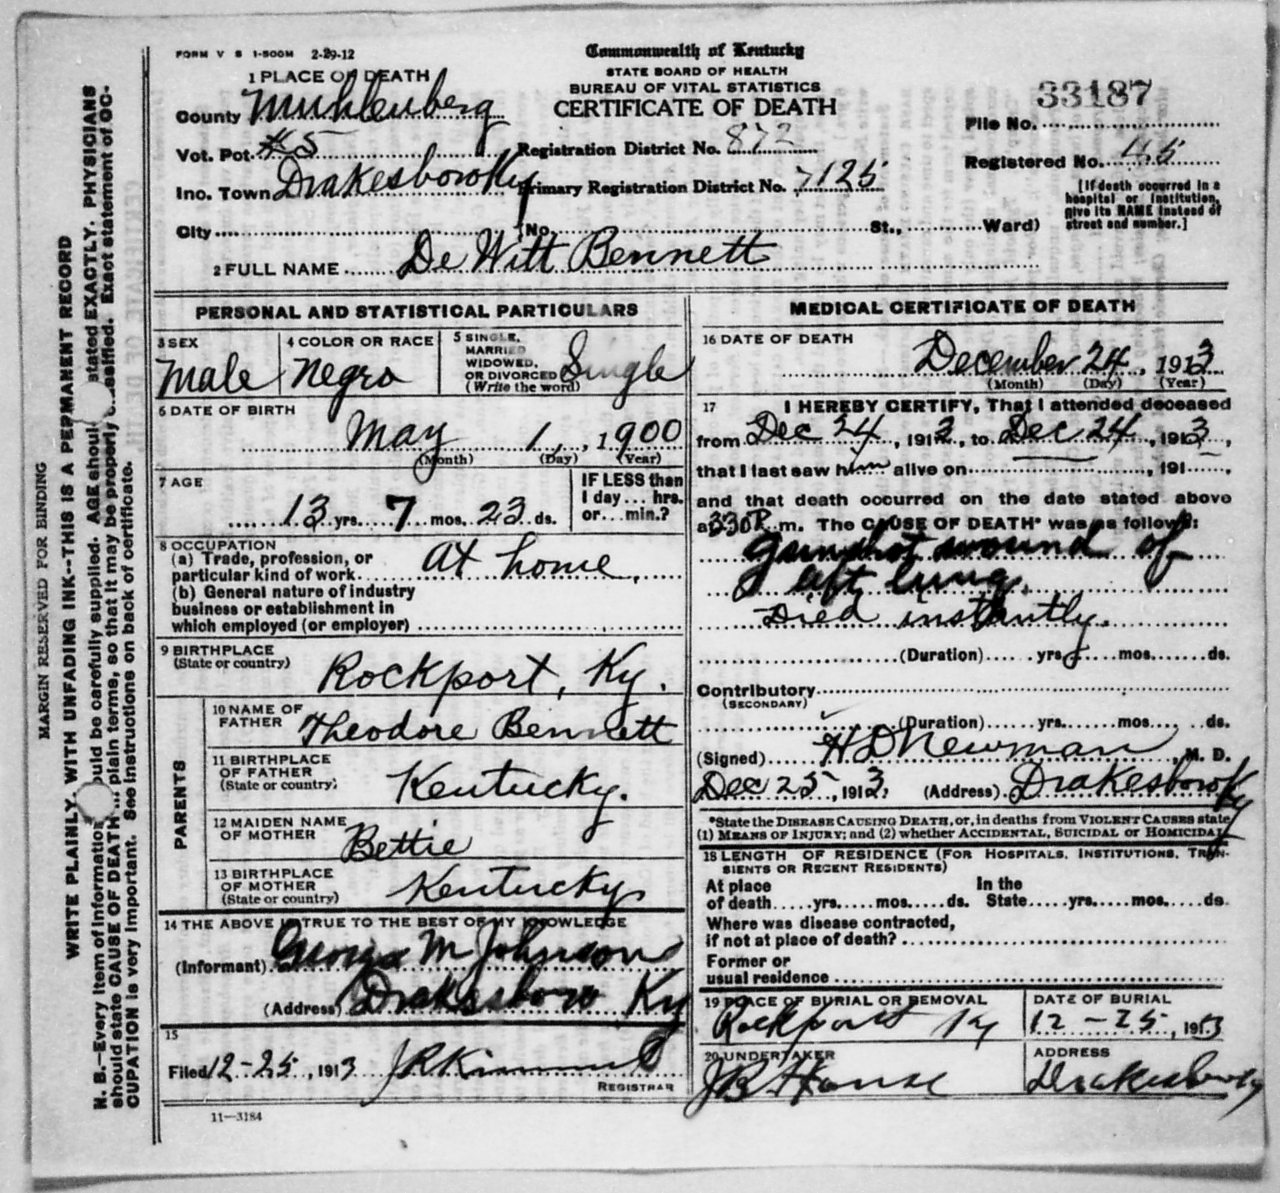 FORM V S 1-500M 2-29-12
Commonwealth of Kentucky
STATE BOARD OF HEALTH
BUREAU OF VITAL STATISTICS
CERTIFICATE OF DEATH
33187
File No.
Registered No. 45
[If death occurred in a hospital or institution, give its NAME instead of street and number.]
1 PLACE OF DEATH
County Muhlenberg
Vot. Pct. #5
Registration District No. 872
Inc. Town Drakesboro Ky
Primary Registration District No. 7125
City (No. St., Ward)
2 FULL NAME De Witt Bennett
PERSONAL AND STATISTICAL PARTICULARS
3 SEX Male
4 COLOR OR RACE Negro
5 SINGLE, MARRIED WIDOWED, OR DIVORCED (Write the word) Single
6 DATE OF BIRTH
May 1, 1900
(Month) (Day) (Year)
7 AGE
13 yrs. 7 mos. 23 ds.
IF LESS than 1 day... hrs. or... min.?
8 OCCUPATION
(a) Trade, profession, or particular kind of work At home.
(b) General nature of industry business or establishment in which employed (or employer)
9 BIRTHPLACE
(State or country) Rockport, Ky.
PARENTS
10 NAME OF FATHER Theodore Bennett
11 BIRTHPLACE OF FATHER (State or country) Kentucky.
12 MAIDEN NAME OF MOTHER Bettie
13 BIRTHPLACE OF MOTHER (State or country) Kentucky
14 THE ABOVE IS TRUE TO THE BEST OF MY KNOWLEDGE
(Informant) George M Johnson
(Address) Drakesboro Ky
15
Filed 12-25, 1913
REGISTRAR
11—3184
MEDICAL CERTIFICATE OF DEATH
16 DATE OF DEATH
December 24, 1913
(Month) (Day) (Year)
17 I HEREBY CERTIFY, That I attended deceased
from Dec 24, 1913, to Dec 24, 1913,
that I last saw him alive on , 191 ,
and that death occurred on the date stated above
at 330 P. m. The CAUSE OF DEATH* was as follows:
Gunshot wound of
left lung.
Died instantly.
(Duration) yrs. mos. ds.
Contributory
(SECONDARY)
(Duration) yrs. mos. ds.
(Signed) H D Newman, M. D.
Dec 25, 1913. (Address) Drakesboro Ky
*State the DISEASE CAUSING DEATH, or, in deaths from VIOLENT CAUSES state
(1) MEANS OF INJURY; and (2) whether ACCIDENTAL, SUICIDAL or HOMICIDAL
18 LENGTH OF RESIDENCE (FOR HOSPITALS, INSTITUTIONS, TRANSIENTS OR RECENT RESIDENTS)
At place of death yrs. mos. ds. In the State yrs. mos. ds.
Where was disease contracted, if not at place of death?
Former or usual residence
19 PLACE OF BURIAL OR REMOVAL Rockport Ky
DATE OF BURIAL 12-25, 1913
20 UNDERTAKER J B House
ADDRESS Drakesboro Ky
MARGIN RESERVED FOR BINDING
WRITE PLAINLY, WITH UNFADING INK--THIS IS A PERMANENT RECORD
N. B.—Every item of information should be carefully supplied. AGE should stated EXACTLY. PHYSICIANS
should state CAUSE OF DEATH plain terms, so that it may be properly classified. Exact statement of OC-
CUPATION is very important. See instructions on back of certificate.